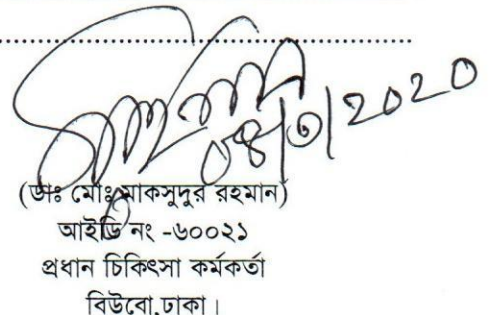 ০৪/৩/২০২০
(ডাঃ মোঃ মাকসুদুর রহমান)
আইডি নং -৬০০২১
প্রধান চিকিৎসা কর্মকর্তা
বিউবো,ঢাকা।